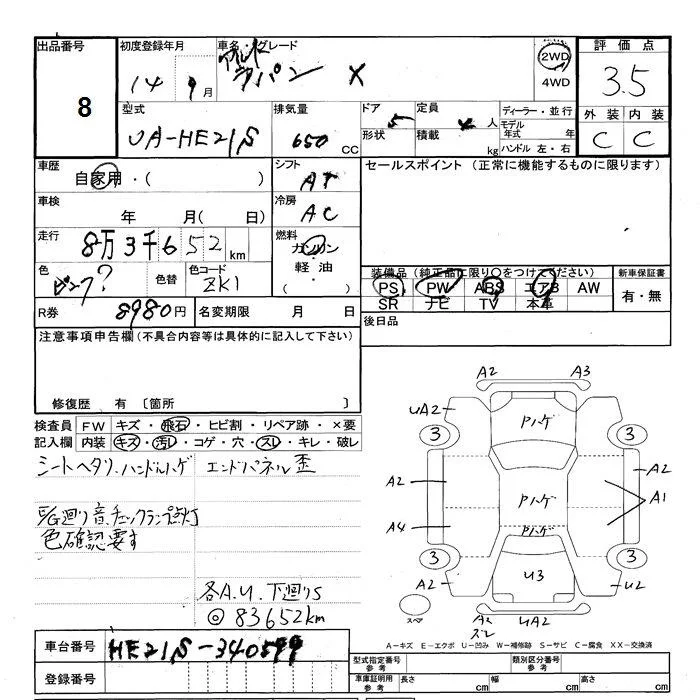 出品番号 初度登録年月 車名・グレード 評価点
8 14 9月 ラパン X 2WD 4WD 3.5
型式 排気量 ドア 形状 5 定員 積載 4 人 kg ディーラー・並行 モデル年式 年 ハンドル 左・右 外装 内装
UA-HE21S 650 CC C C
車歴 自家用・( ) シフト AT セールスポイント (正常に機能するものに限ります)
車検 年 月(日) 冷房 AC
走行 8万3千652 km 燃料 ガソリン 軽油・( )
色 ピンク? 色替 色コード ZK1 装備品 (純正品に限り○をつけてください) 新車保証書
PS PW ABS エアB AW 有・無
SR ナビ TV 本革
R券 8980円 名変期限 月 日 後日品
注意事項申告欄(不具合内容等は具体的に記入して下さい)
修復歴 有 〔箇所 〕
検査員 記入欄 FW キズ・飛石・ヒビ割・リペア跡・×要
内装 キズ・汚レ・コゲ・穴・スレ・キレ・破レ
シートヘタリ、ハンドルハゲ エンドパネル歪
E/G廻り音、チェックランプ点灯
色確認要す
各A.U.下廻りS
◎83652km
A2 A3
UA2 Pハゲ
3 3
A2 A2
Pハゲ A1
A4 Pハゲ
3 3
A2 U3 U2
スペア A2 ズレ UA2
A-キズ E-エクボ U-凹み W-補修跡 S-サビ C-腐食 XX-交換済
車台番号 HE21S-340599
登録番号
型式指定番号 参考 類別区分番号 参考
車庫証明用 参考 長さ cm 幅 cm 高さ cm